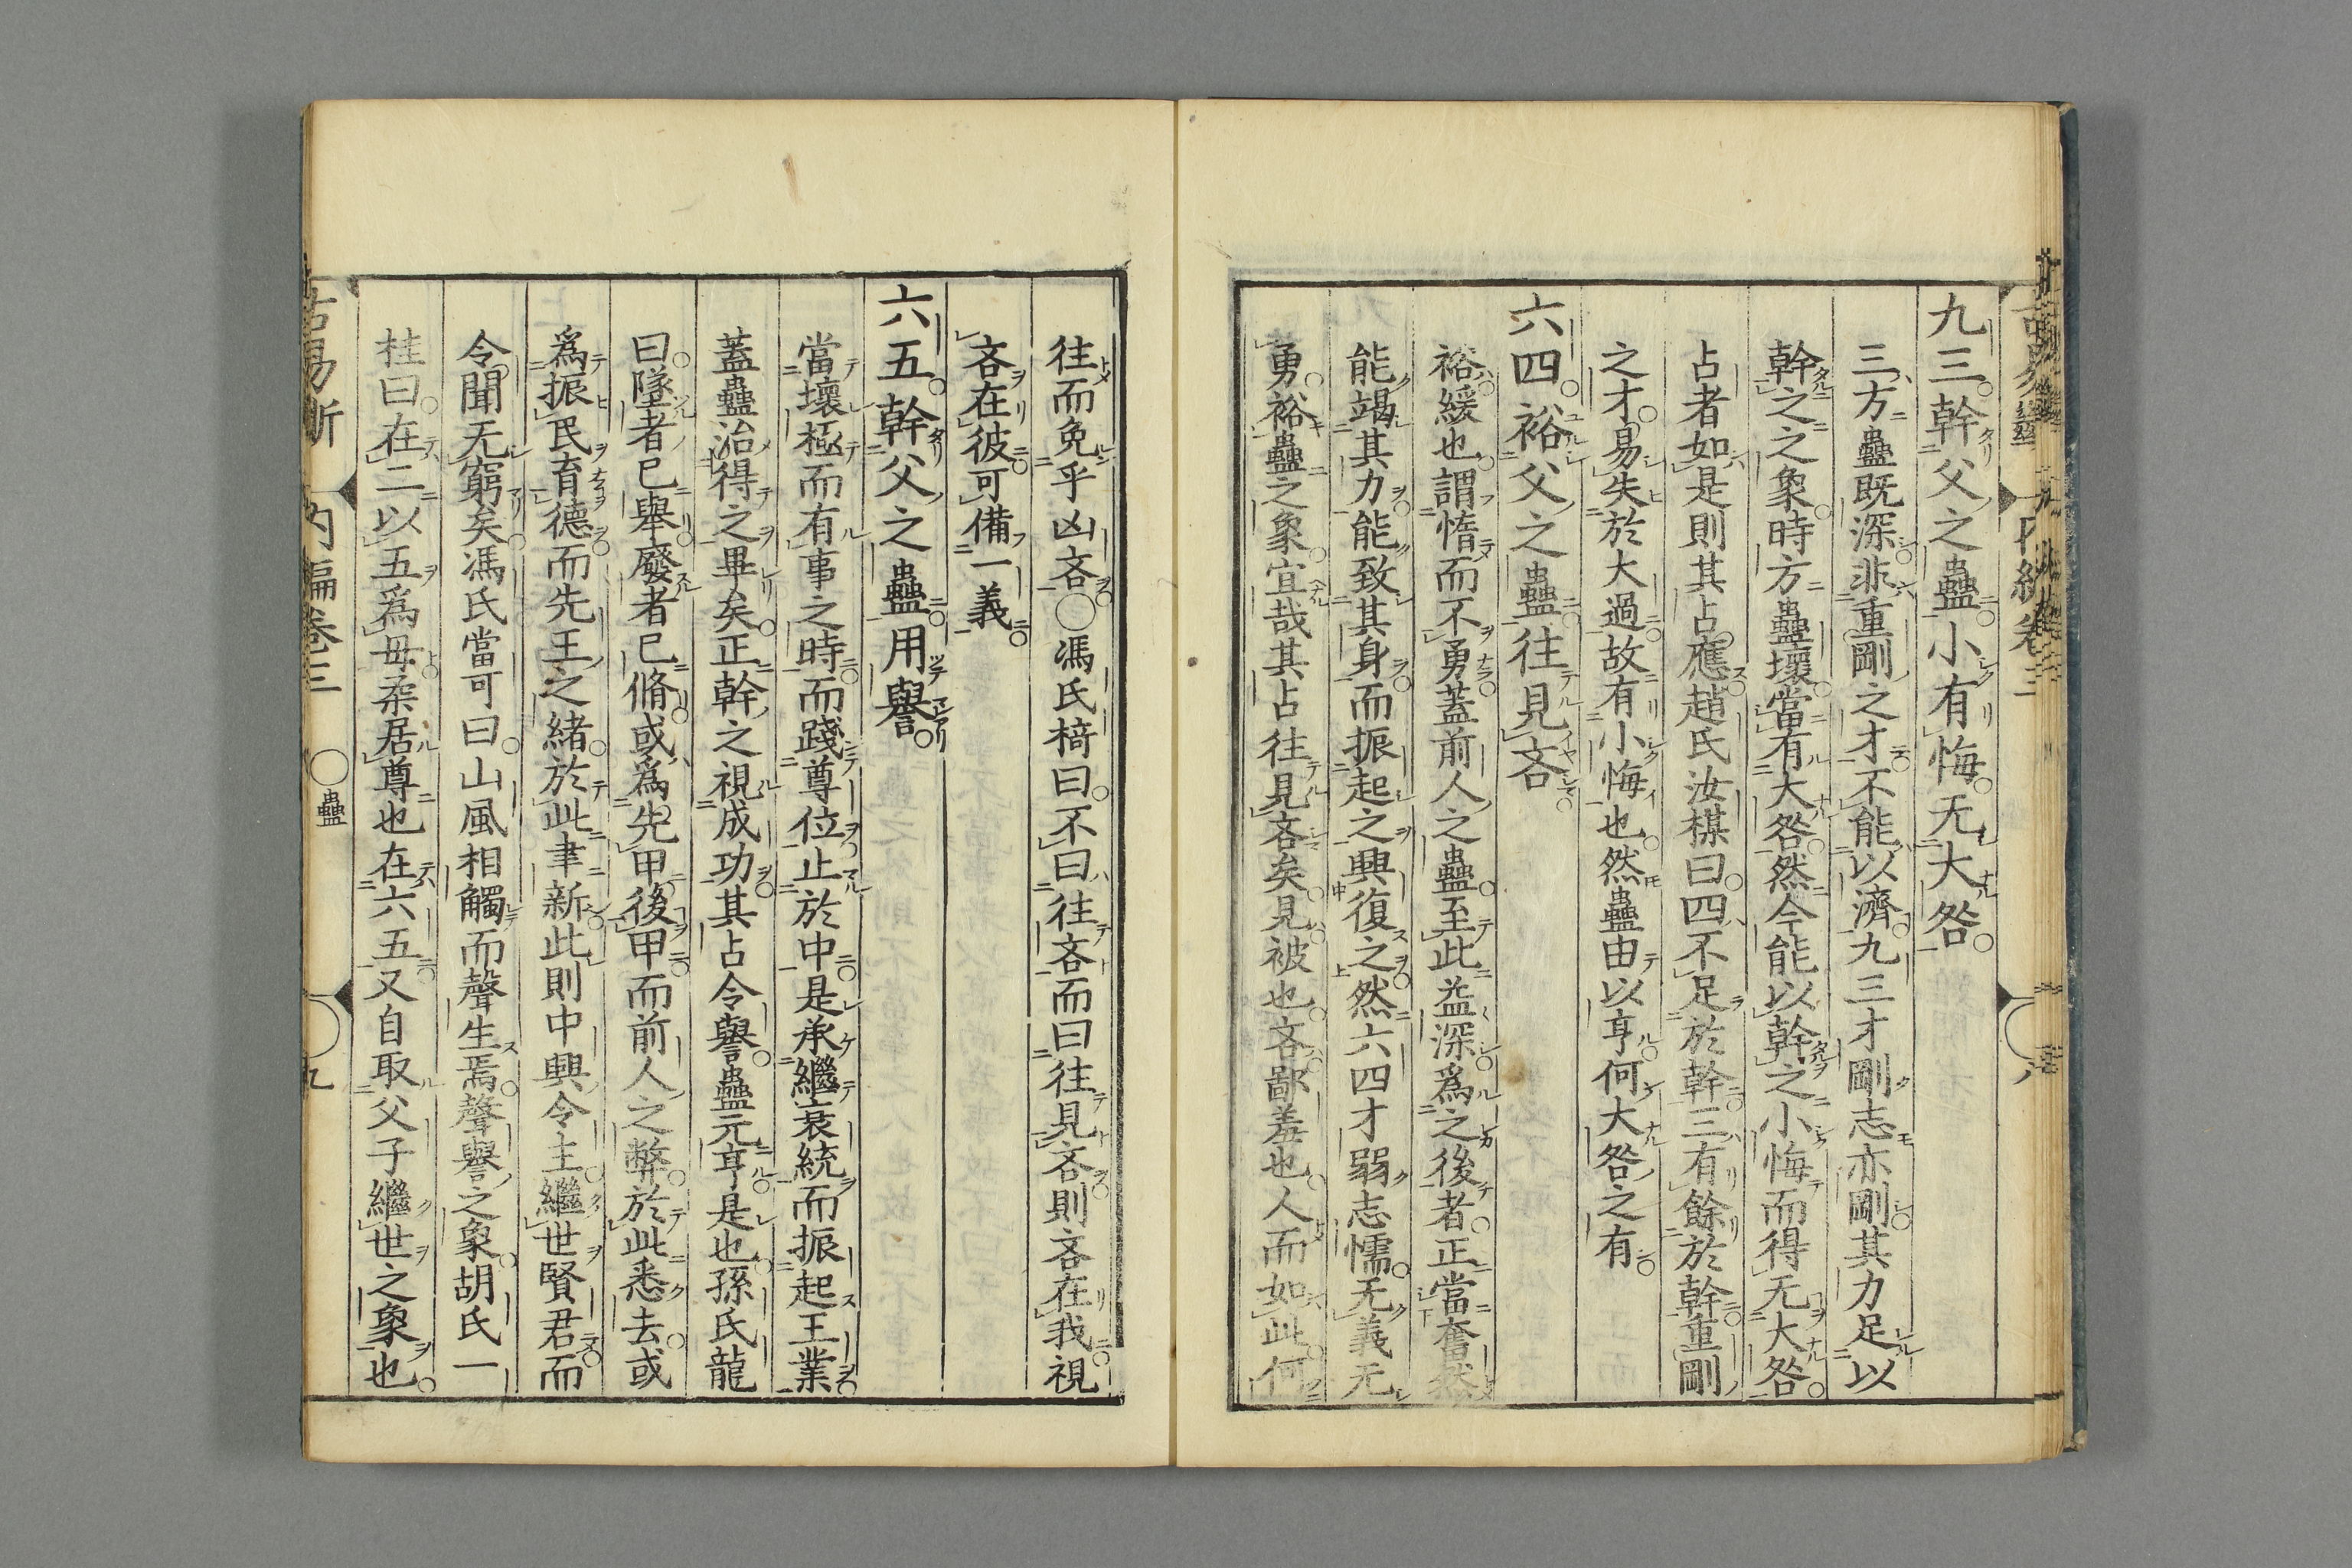 九三幹父之蠱小有悔无大咎
三方蠱既深非重剛之才不能以濟九三才剛志亦剛其力足以
幹之之象時方蠱壞當有大咎然今能以幹之小悔而得无大咎
占者如是則其占應趙氏汝楳曰四不足於幹三有餘於幹重剛
之才易失於大過故有小悔也然蠱由以亨何大咎之有
六四裕父之蠱往見吝
裕緩也謂惰而不勇蓋前人之蠱至此益深爲之後者正當奮然
能竭其力能致其身而振起之興復之然六四才弱志懦无義无
勇裕蠱之象宜哉其占往見吝矣見被也吝鄙羞也人而如此何
往而免乎凶吝○馮氏椅曰不曰往吝而曰往見吝則吝在我視
吝在彼可備一義
六五幹父之蠱用譽
當壞極而有事之時而踐尊位止於中是承繼衰統而振起王業
蓋蠱治得之畢矣正幹之視成功其占令譽蠱元亨是也孫氏龍
曰墜者已舉廢者已脩或爲先甲後甲而前人之弊於此悉去或
爲振民育德而先王之緒於此聿新此則中興令主繼世賢君而
令聞无窮矣馮氏當可曰山風相觸而聲生焉聲譽之象胡氏一
桂曰在二以五爲母柔居尊也在六五又自取父子繼世之象也
古易斷 内編卷三 ○蠱 九